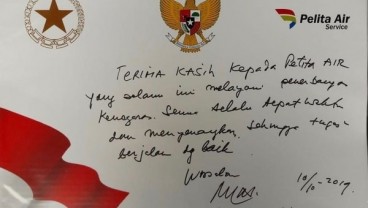 Pelita Air
Service
TERIMA KASIH Kepada Pelita AIR
yang selama ini melayani penerbangan
Kenegaraan. Semua Selalu tepat waktu
dan menyenangkan, Sehingga tugas
berjalan dg baik
Wassalam
10/10-2019